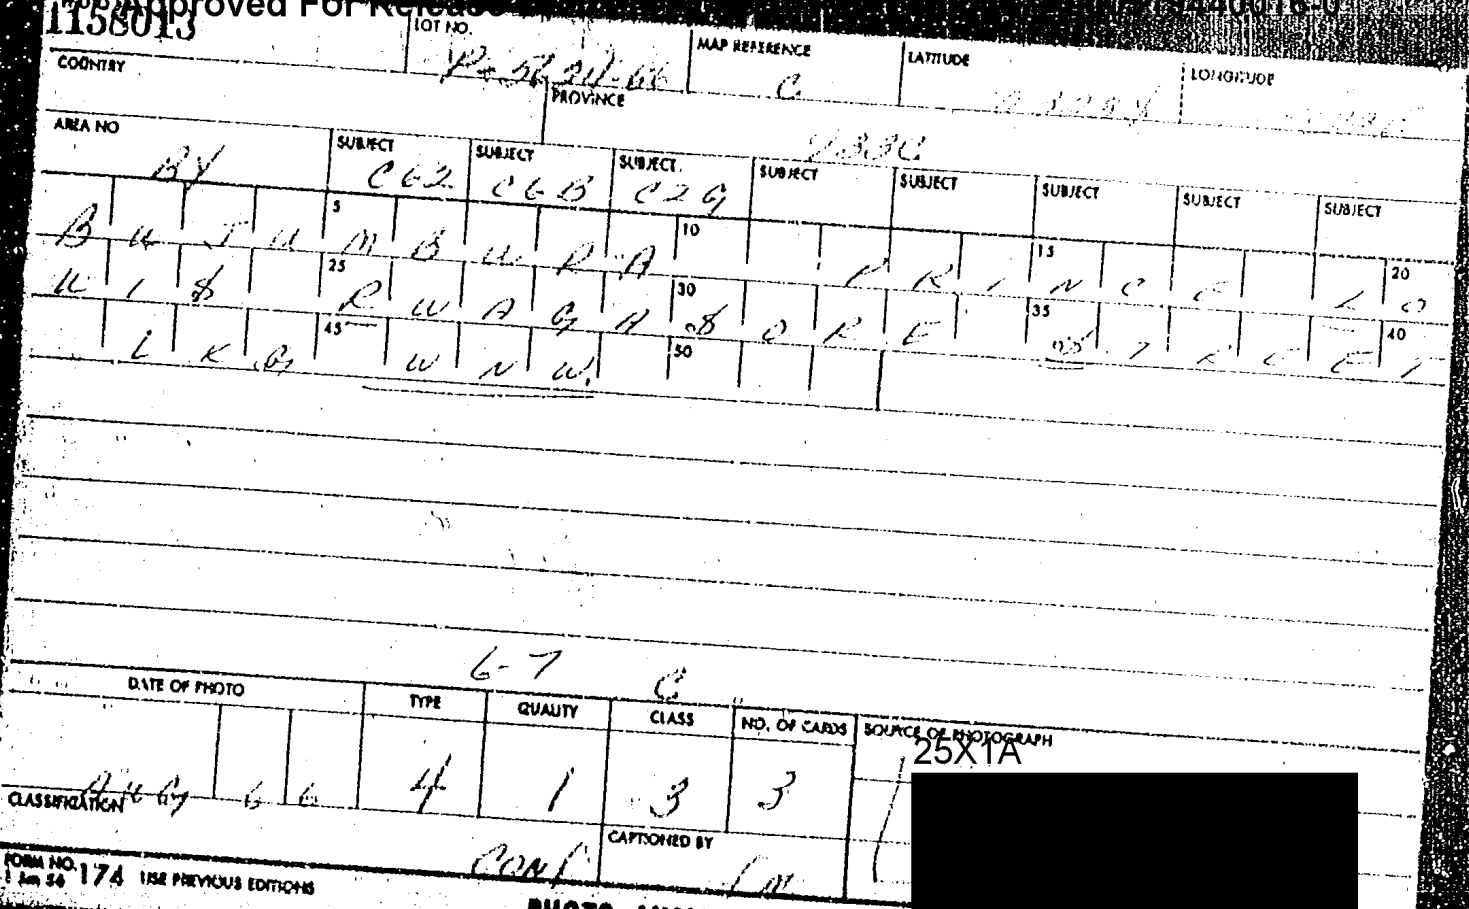 Approved For Release
1158013
LOT NO. MAP REFERENCE LATITUDE LONGITUDE
C
COUNTRY PROVINCE
AREA NO SUBJECT SUBJECT SUBJECT SUBJECT SUBJECT SUBJECT SUBJECT SUBJECT
BY C62 C6B C2G
5 10 15 20
BUJUMBURA PRINCE LO
25 30 35 40
UIS RWAGASORE STREET
45 50
LKG WNW
6-7 C
DATE OF PHOTO TYPE QUALITY CLASS NO. OF CARDS SOURCE OF PHOTOGRAPH
25X1A
AUG 66 4 1 3 3
CLASSIFICATION CAPTIONED BY
CONF
FORM NO. 174 USE PREVIOUS EDITIONS
1 Jan 56